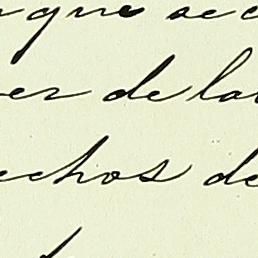 que se c
er de la
echos de